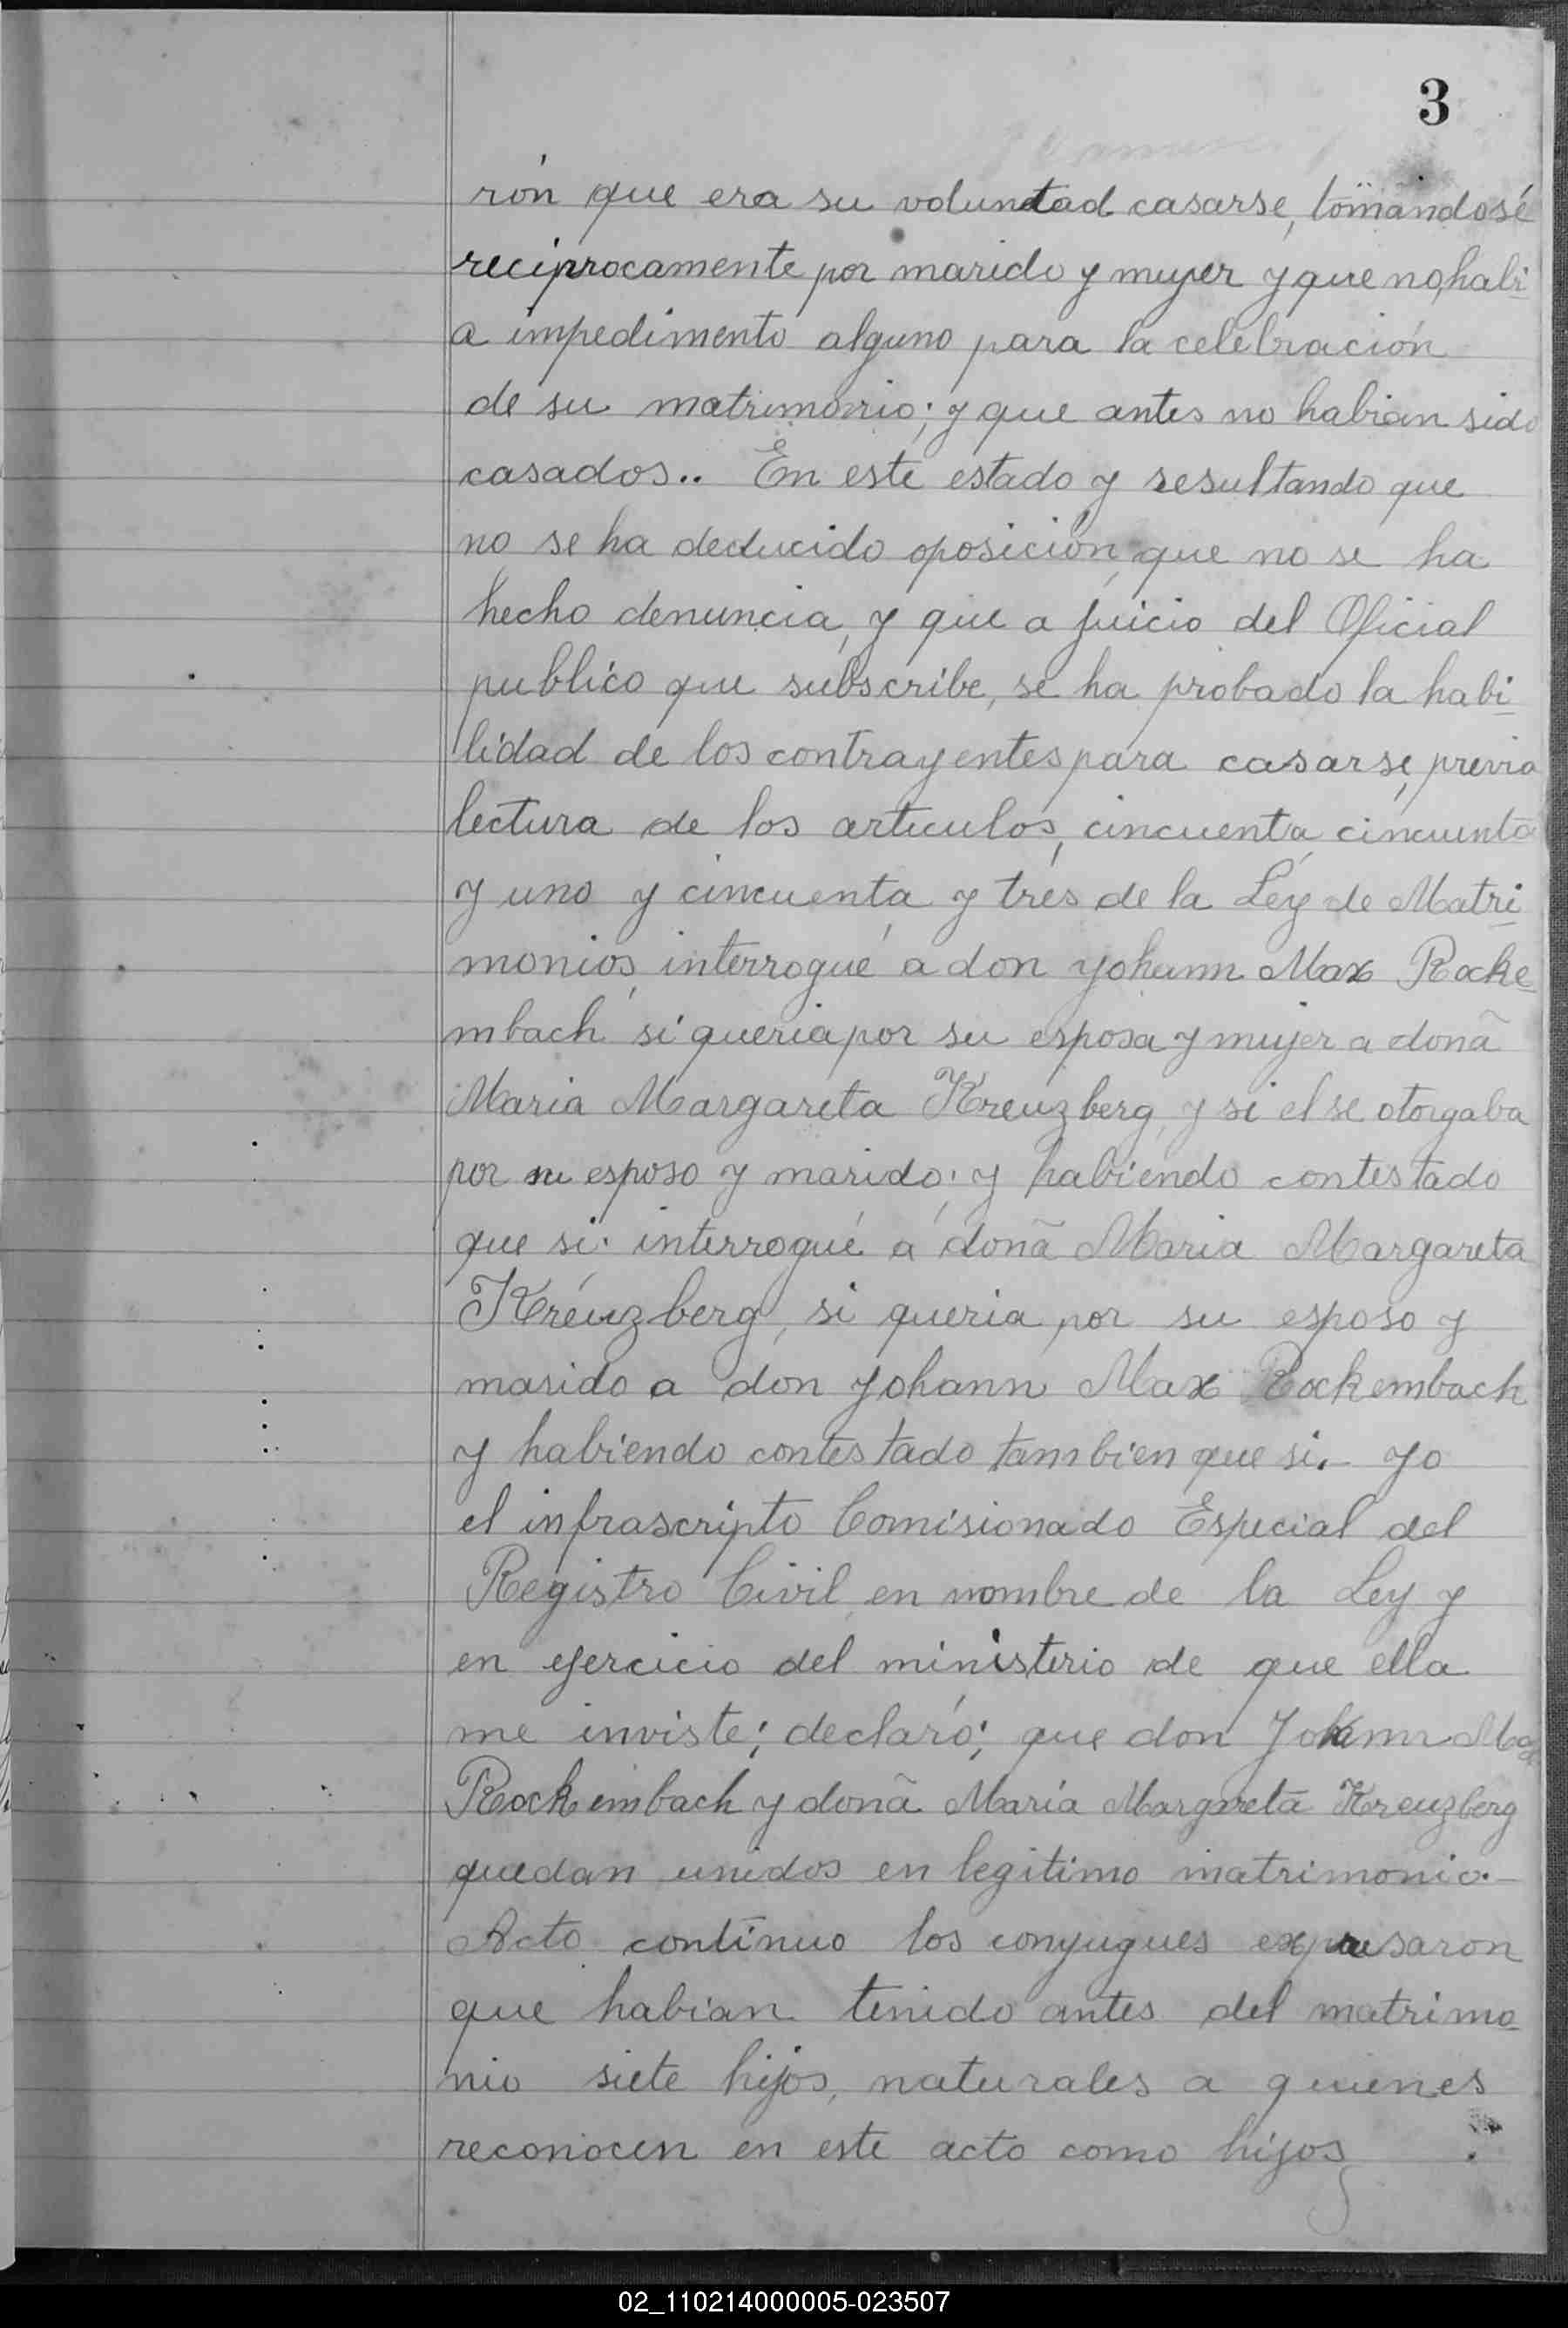 3
rón que era su voluntad casarse, tomandosé
reciprocamente por marido y mujer y que no habi-
a impedimento alguno para la celebración
de su matrimonio; y que antes no habian sido
casados.. En este estado y resultando que
no se ha deducido oposición, que no se ha
hecho denuncia, y que a juicio del Oficial
publico que subscribe, se ha probado la habi-
lidad de los contrayentes para casarse, previa
lectura de los articulos, cincuenta, cincuenta
y uno y cincuenta y tres de la Ley de Matri-
monios, interrogué a don Yohann Max Rocke-
mbach si queria por su esposa y mujer a doña
Maria Margareta Kreuzberg, y si el se otorgaba
por su esposo y marido; y habiendo contestado
que si: interrogué á doña Maria Margareta
Kreuzberg, si queria por su esposo y
marido a don Yohann Max Rockembach
y habiendo contestado tambien que si.- Yo
el infrascripto Comisionado Especial del
Registro Civil, en nombre de la Ley y
en ejercicio del ministerio de que ella
me inviste; declaró; que don Johann Max
Rockembach y doña María Margareta Kreuzberg
quedan unidos en legitimo matrimonio.-
Acto continuo los conyugues expresaron
que habian tenido antes del matrimo-
nio siete hijos, naturales a quienes
reconocen en este acto como hijos
02_110214000005-023507